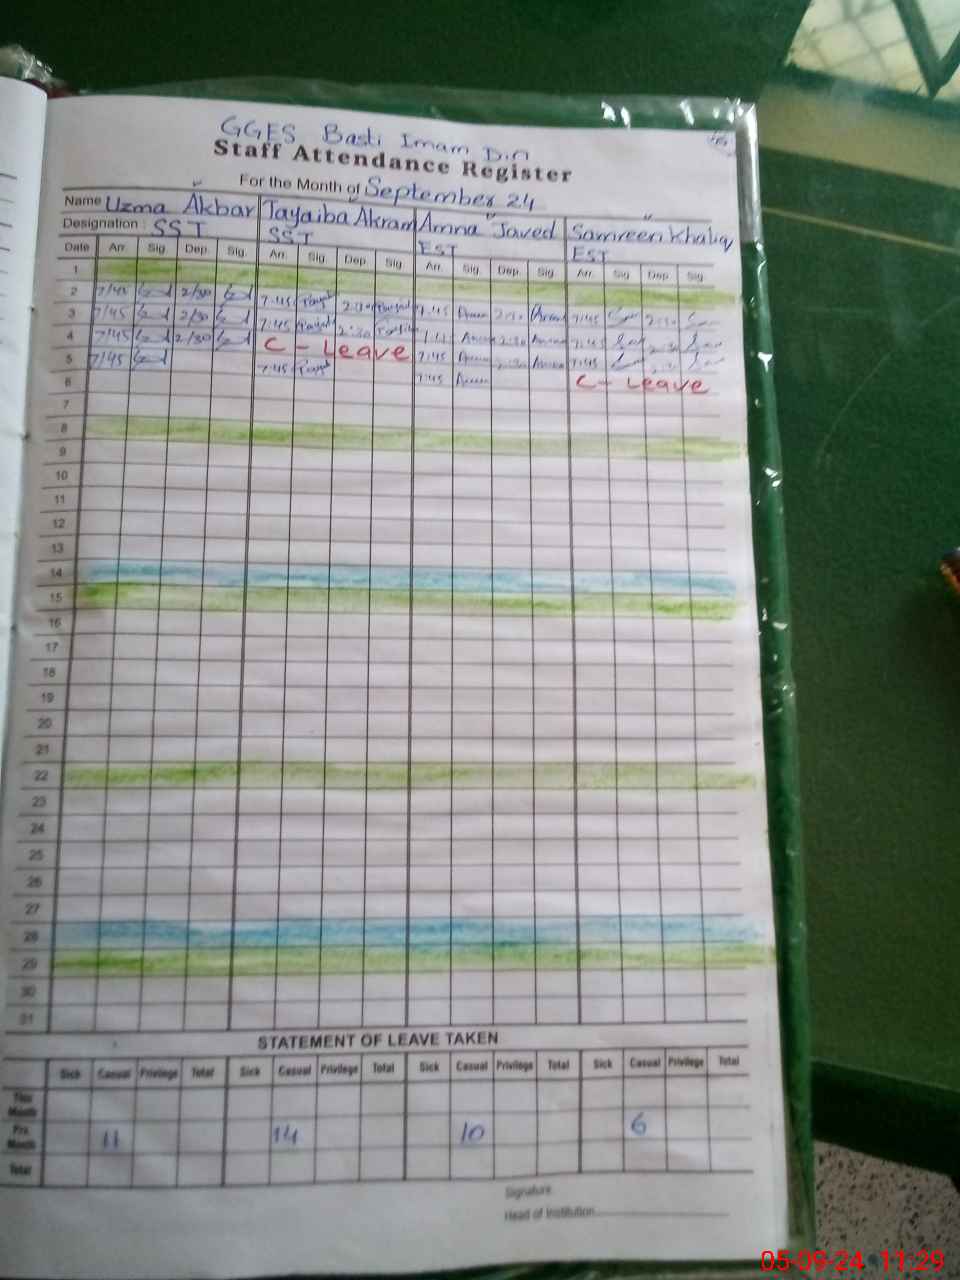 GGES Basti Imam Din
Staff Attendance Register
For the Month of September 24
Name Uzma Akbar Tayaiba Akram Amna Javed Samreen Khaliq
Designation : SST SST EST EST
Date Arr. Sig. Dep. Sig. Arr. Sig. Dep. Sig. Arr. Sig. Dep. Sig. Arr. Sig. Dep. Sig.
1
2 7/45 2/30 7:45 2:30 7:45 2:30 7:45 2:30
3 7/45 2/30 7:45 2:30 2:30 7:45 2:30
4 7/45 2/30 C - Leave 7:45 2:30 7:45
5 7/45 7:45 7:45 C - Leave
6
7
8
9
10
11
12
13
14
15
16
17
18
19
20
21
22
23
24
25
26
27
28
29
30
31
STATEMENT OF LEAVE TAKEN
Sick Casual Privilege Total Sick Casual Privilege Total Sick Casual Privilege Total Sick Casual Privilege Total
This Month
Pre. Month 11 14 10 6
Total
Signature
Head of Institution
05-09-24 11:29